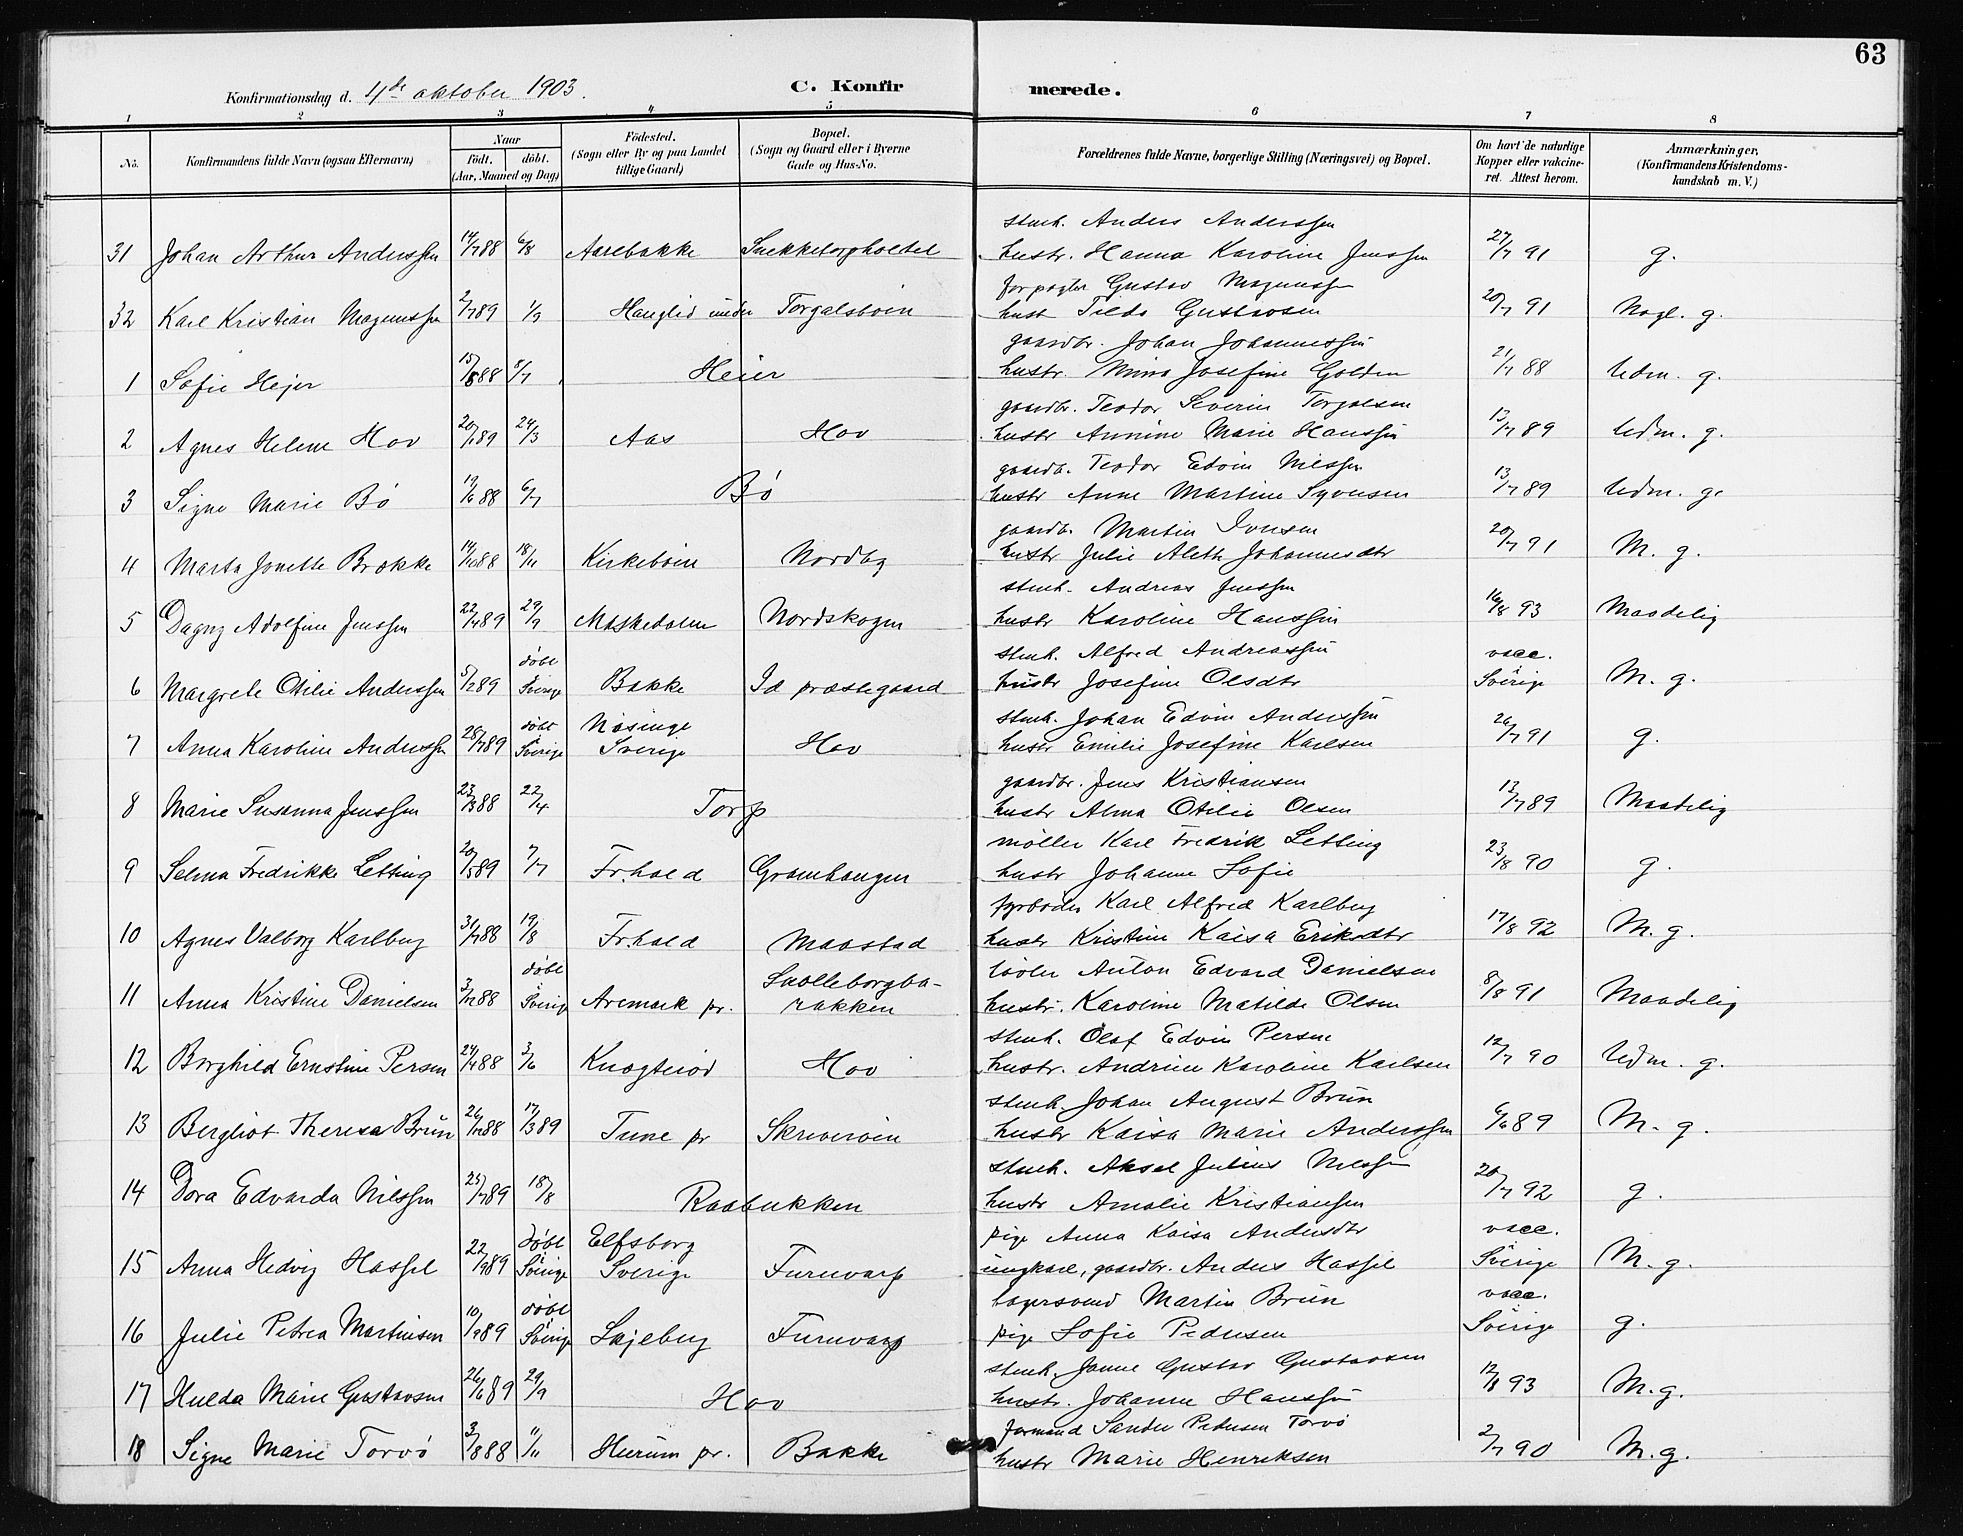 63
Konfirmationsdag d. 4de oktober 1903.
C. Konfirmerede.
1 2 3 4 5 6 7 8
No.
Konfirmandens fulde Navn (ogsaa Efternavn)
Naar
født. døbt.
(Aar, Maaned og Dag)
Födested.
(Sogn eller By og paa Landet
tillige Gaard)
Bopæl.
(Sogn og Gaard eller i Byerne
Gade og Hus-No.
Forældrenes fulde Navne, borgerlige Stilling (Næringsvei) og Bopæl.
Om havt de naturlige
Kopper eller vakcine-
ret. Attest herom.
Anmærkninger,
(Konfirmandens Kristendoms-
kundskab m. V.)
stenh. Anders Anderssen
31 Johan Arthur Anderssen 14/7 88 6/8 Aarebakke hustr. Hanna Karoline Jenssen 27/7 91 g.
forpagter Gustav Magnuss
32 Karl Kristian Magnussen 2/7 89 1/9 Hauglid under Torgalsbøen hust Tilda Gustavsen 20/7 91 Nogl. g.
gaardbr. Johan Johannessen
1 Sofie Hejer 15/5 88 8/7 Heier hustr. Mina Josefine Golden 21/7 88 Udm. g.
gaardbr. Teodor Severin Torgalsen
2 Agnes Helene Hov 20/1 89 24/3 Aas Hov hustr Annine Marie Hanssen 13/7 89 Udm. g.
gaardb. Teodor Edvin Nilssen
3 Signe Marie Bø 19/6 88 6/7 Bø hustr Anne Martine Syvensen 13/7 89 Udm. g.
gaardb. Martin Ivensen
4 Marta Jonette Brække 14/10 88 18/11 Kirkebøen Nordby hustr Julie Aleth Johannesdtr 20/7 91 M. g.
stenh. Andreas Jenssen
5 Dagny Adolfine Jenssen 22/7 89 29/9 Maskedalen Nordskogen hustr Karoline Hanssen 16/8 93 Maadelig
døbt stenh. Alfred Andreassen vacc.
6 Margrete Otilie Anderssen 5/2 89 Sverige Bakke Id præstegaard hustr Josefine Olsdtr Sverige M. g.
døbt Näsinge stenh. Johan Edvin Anderssen
7 Anna Karoline Anderssen 28/7 89 Sverige Sverige Hov hustr Emilie Josefine Karlsen 26/7 91 g.
gaardbr. Jens Kristiansen
8 Marie Susanna Jenssen 23/3 88 22/4 Torp hustr Alma Otilie Olsen 13/7 89 Maadelig
møller Karl Fredrik Letting
9 Selma Fredrikke Letting 20/5 89 7/7 Fr.hald Gramhaugen hustr Johanne Sofie 23/8 90 g.
fyrbøder Karl Alfred Karlberg
10 Agnes Valborg Karlberg 31/7 88 19/8 Fr.hald Maastad hustr Kristine Kaisa Eriksdtr 17/8 92 M. g.
døbt Svolleborgba- Anton Edvard Danielsen
11 Anna Kristine Danielsen 3/12 88 Sverige Aremark pr. rakken hustr. Karoline Matilde Olsen 8/8 91 Maadelig
stenh. Olaf Edvin Persen
12 Borghild Ernstine Persen 24/4 88 3/6 Knogterød Hov hustr. Andrine Karoline Karlsen 12/7 90 Udm. g.
stenh. Johan August Brün
13 Bergliot Theresa Brün 26/12 88 17/3 89 Tune pr Skriverøen hustr Kaisa Marie Anderssen 6/6 89 M. g.
stenh. Aksel Julius Nilssen
14 Dora Edvarda Nilssen 25/7 89 18/8 Raabukken hustr Amalie Kristiansen 20/7 92 g.
døbt Elfsborg pige Anna Kaisa Andersdtr vacc.
15 Anna Hedvig Hassel 22/9 89 Sverige Sverige Furuvarp ungkarl, gaardbr. Anders Hassel Sverige M. g.
døbt bagersvend Martin Brün vacc.
16 Julie Petrea Martinsen 10/9 89 Sverige Skjeberg Furuvarp pige Sofie Pedersen Sverige g.
stenh. Janne Gustav Gustavsen
17 Hulda Marie Gustavsen 26/6 89 29/9 Hov hustr. Johanne Hanssen 12/8 93 M. g.
formand Sander Pedersen Torvø
18 Signe Marie Torvø 3/8 88 11/11 Hurum pr. Bakke hustr Marie Henriksen 2/7 90 M. g.